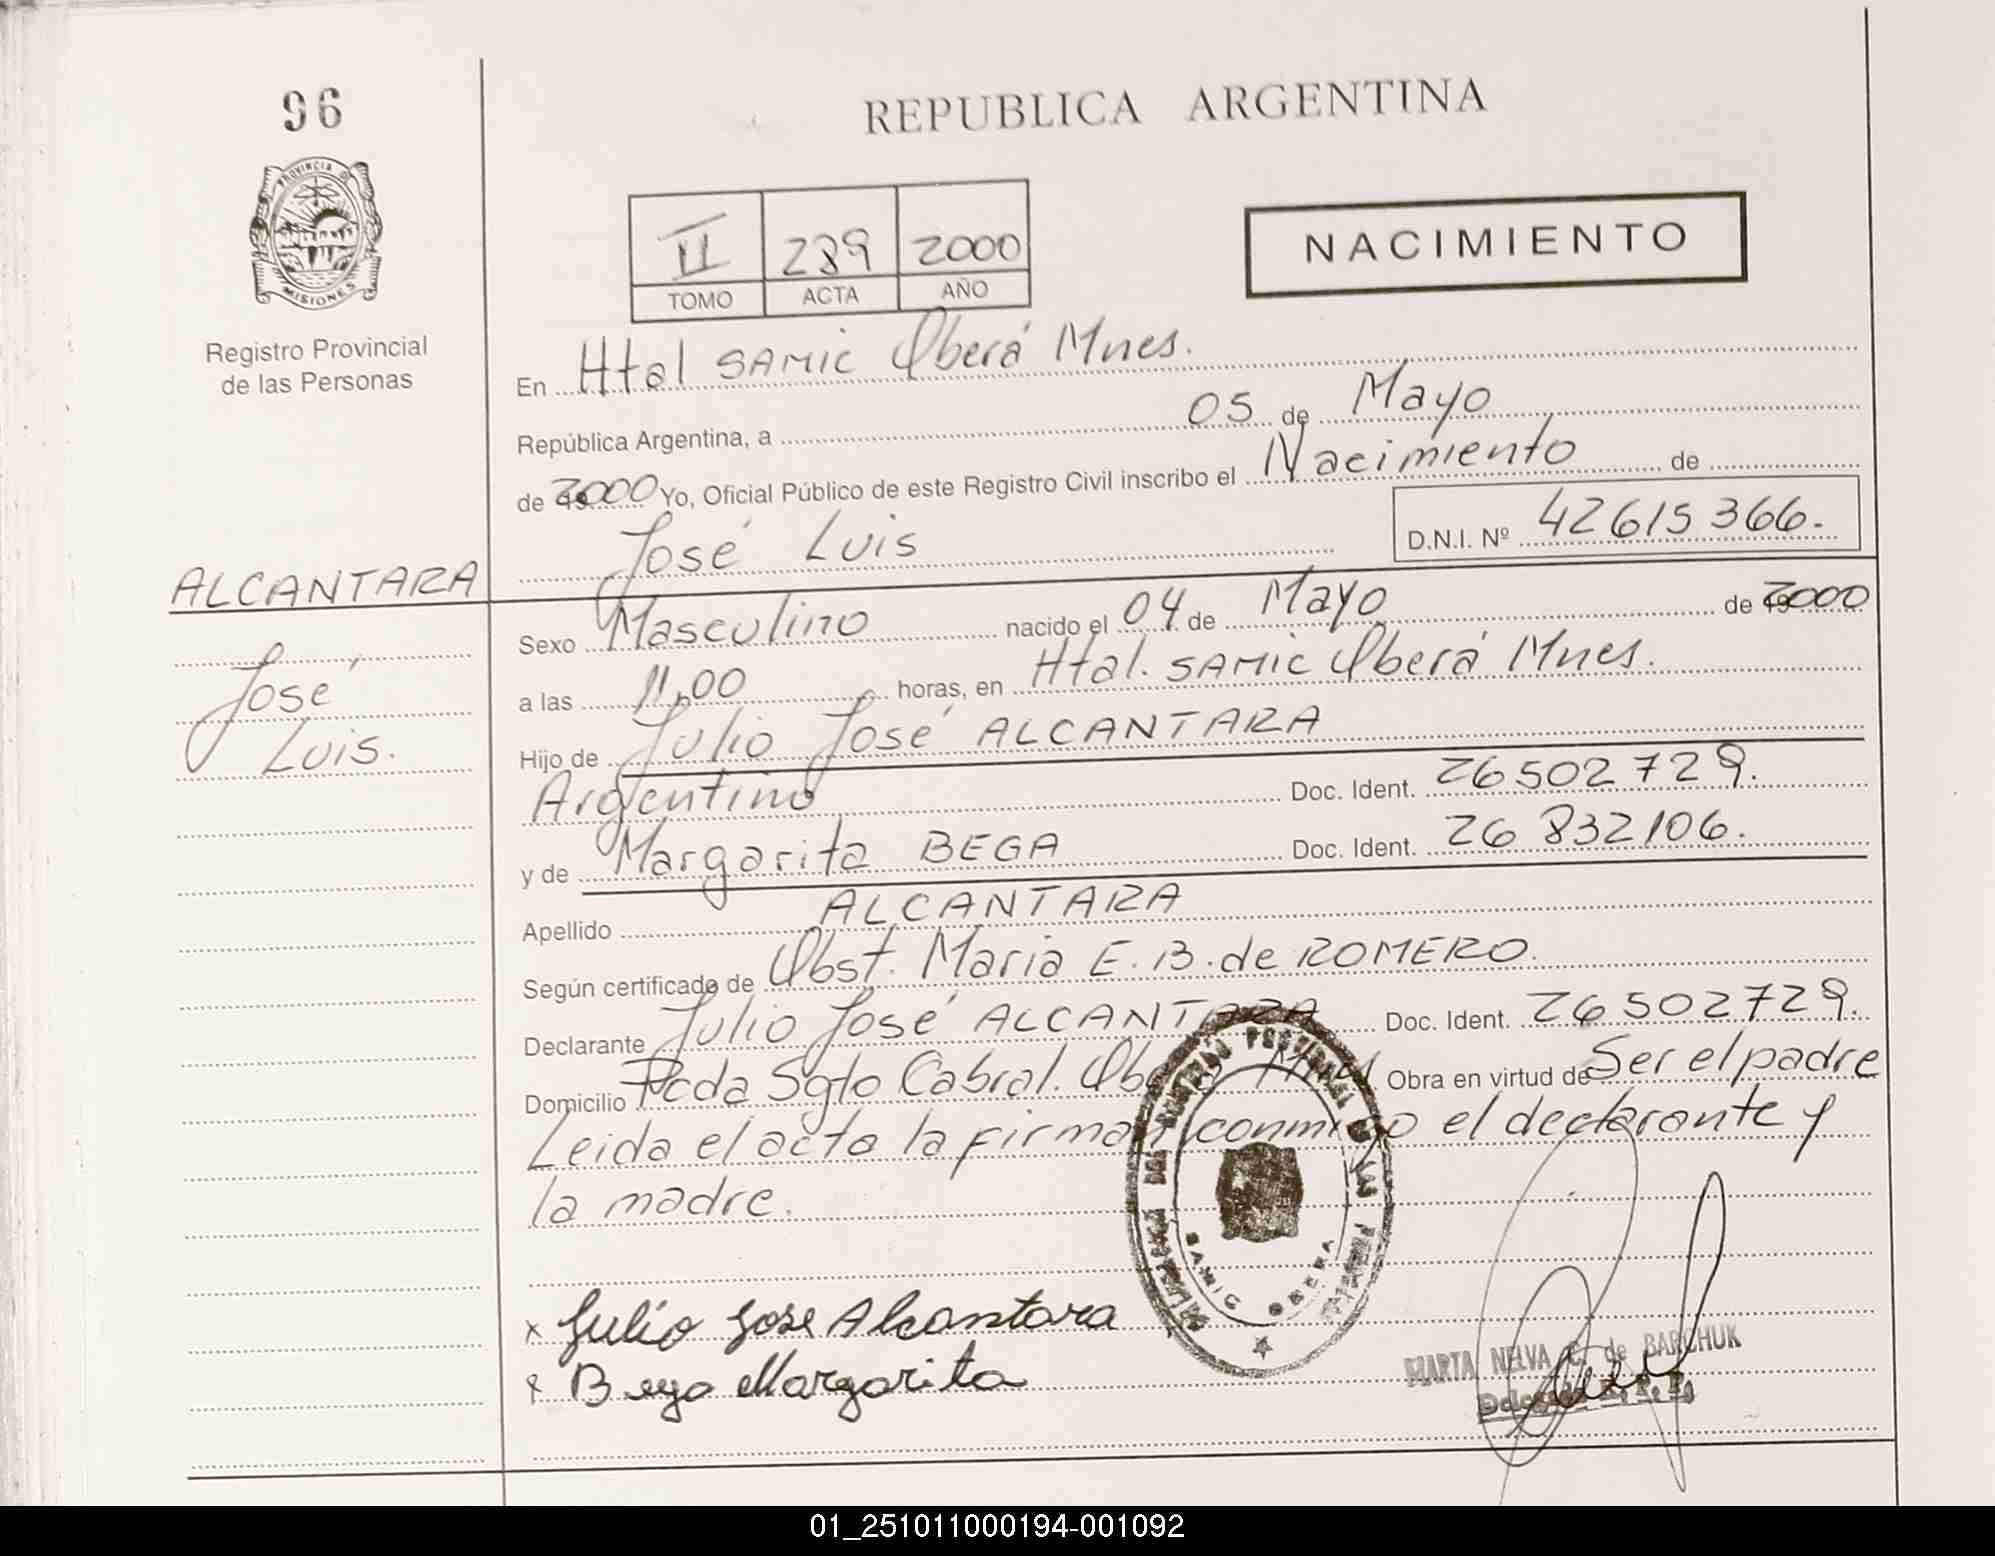 96
REPUBLICA ARGENTINA
PROVINCIA DE
MISIONES
Registro Provincial
de las Personas
II 289 2000
TOMO ACTA AÑO
NACIMIENTO
En Htal SAMIC Oberá Mnes.
República Argentina, a 05 de Mayo
de 2000 Yo, Oficial Público de este Registro Civil inscribo el Nacimiento de
José Luis D.N.I. Nº 42615366.
ALCANTARA
José
Luis.
Sexo Masculino nacido el 04 de Mayo de 2000
a las 11,00 horas, en Htal. SAMIC Oberá Mnes.
Hijo de Julio José ALCANTARA
Argentino Doc. Ident. 26502729.
y de Margarita BEGA Doc. Ident. 26 832106.
Apellido ALCANTARA
Según certificado de Obst. Maria E. B. de ROMERO.
Declarante Julio José ALCANTARA Doc. Ident. 26502729.
Domicilio Pcda Sgto Cabral. Obra en virtud de Ser el padre
Leida el acta la firman conmigo el declarante y
la madre.
SAMIC OBERA
x Julio Jose Alcantara
x Bega Margarita
MARTA NELVA C. de BARCHUK
01_251011000194-001092